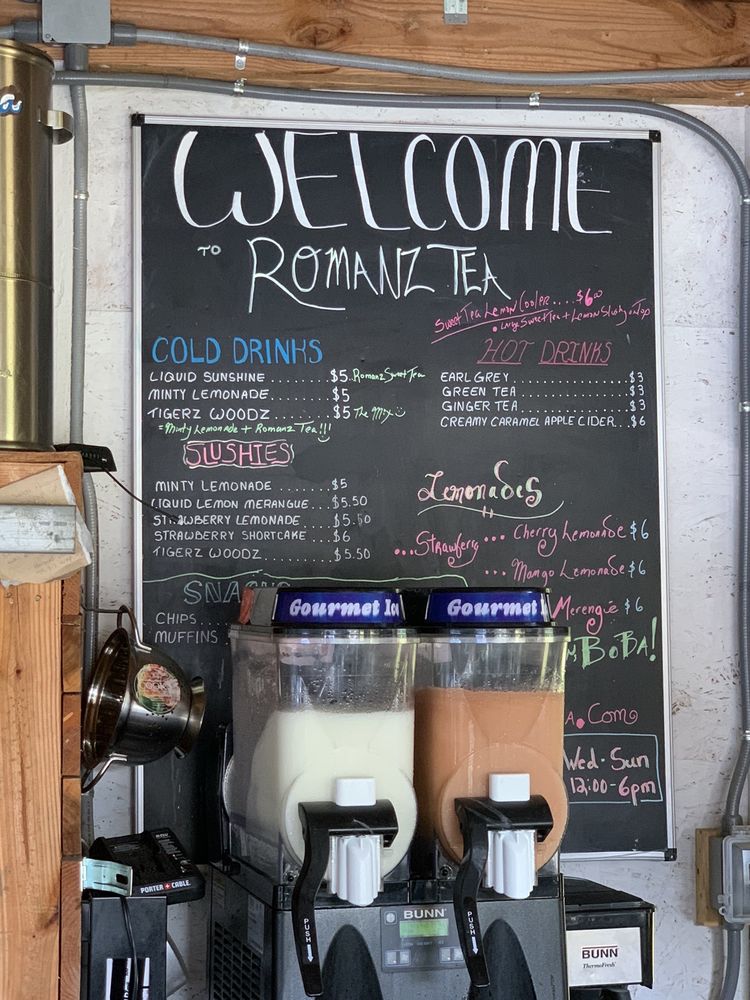 WELCOME
TO ROMANZ TEA
Sweet Tea Lemon Cooler....$6.00
• Large Sweet Tea + Lemon Slushy on Top
COLD DRINKS
LIQUID SUNSHINE..........$5..Romanz Sweet Tea
MINTY LEMONADE..........$5
TIGERZ WOODZ..........$5 The Mix
=Minty Lemonade + Romanz Tea!!!
HOT DRINKS
EARL GREY..........$3
GREEN TEA..........$3
GINGER TEA..........$3
CREAMY CARAMEL APPLE CIDER..$6
SLUSHIES
MINTY LEMONADE........$5
LIQUID LEMON MERANGUE..$5.50
STRAWBERRY LEMONADE...$5.50
STRAWBERRY SHORTCAKE..$6
TIGERZ WOODZ..........$5.50
Lemonades
...Strawferry ... Cherry Lemonade $6
... Mango Lemonade $6
Merengue $6
BOBA!
SNACKS
CHIPS...
MUFFINS
A.Com
Wed-Sun
12:00-6pm
Gourmet Ice
Gourmet I
PUSH
PUSH
BUNN
BUNN
ThermoFresh
PORTER+CABLE